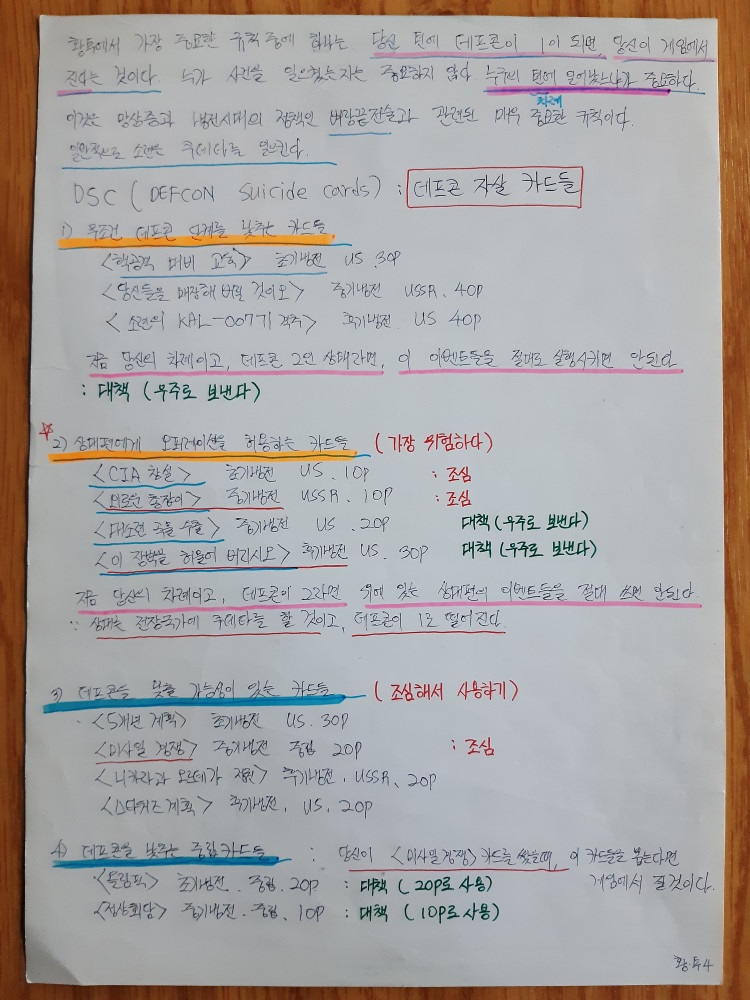 황투에서 가장 중요한 규칙 중에 하나는 당신 턴에 데프콘이 1이 되면, 당신이 게임에서
진다는 것이다. 누가 사건을 일으켰는지는 중요하지 않다 누구의 턴에 일어났느냐가 중요하다.
차례
이것은 망상증과 냉전시대의 정책인 벼랑끝전술과 관련된 매우 중요한 규칙이다.
일반적으로 소련은 쿠데타를 일으킨다.
DSC ( DEFCON Suicide cards) : 데프콘 자살 카드들
1) 무조건 데프콘 단계를 낮추는 카드들
<핵공격 대비 교육> 초기냉전 US .3op
<당신들을 매장해 버릴 것이오> 중기냉전 USSR. 4op
<소련의 KAL-007기 격추> 후기냉전. US 4op
지금 당신의 차례이고, 데프콘 2인 상태라면, 이 이벤트들을 절대로 실행시키면 안된다
: 대책 (우주로 보낸다)
☆
2) 상대편에게 오퍼레이션을 허용하는 카드들 (가장 위험하다)
<CIA 창설> 초기냉전 US. 1op : 조심
<외로운 총잡이> 중기냉전 USSR. 1op : 조심
<대소련 곡물 수출> 중기냉전 US. 2op 대책 (우주로 보낸다)
<이 장벽을 허물어 버리시오> 후기냉전 US. 3op 대책 (우주로 보낸다)
지금 당신의 차례이고, 데프콘이 2라면 위에 있는 상대편의 이벤트들을 절대 쓰면 안된다.
∵ 상대는 전장국가에 쿠데타를 할 것이고, 데프콘이 1로 떨어진다.
3) 데프콘을 낮출 가능성이 있는 카드들 (조심해서 사용하기)
<5개년 계획> 초기냉전 US. 3op
<미사일 경쟁> 중기냉전 중립 2op : 조심
<니카라과 오르테가 당선> 후기냉전. USSR. 2op
<스타워즈 계획> 후기냉전. US. 2op
4) 데프콘을 낮추는 중립카드들 : 당신이 <미사일경쟁> 카드를 썼을때, 이 카드들을 뽑는다면
게임에서 질 것이다.
<올림픽> 초기냉전. 중립. 2op : 대책 ( 2op로 사용)
<정상회담> 중기냉전. 중립. 1op : 대책 ( 1op로 사용)
황.투4